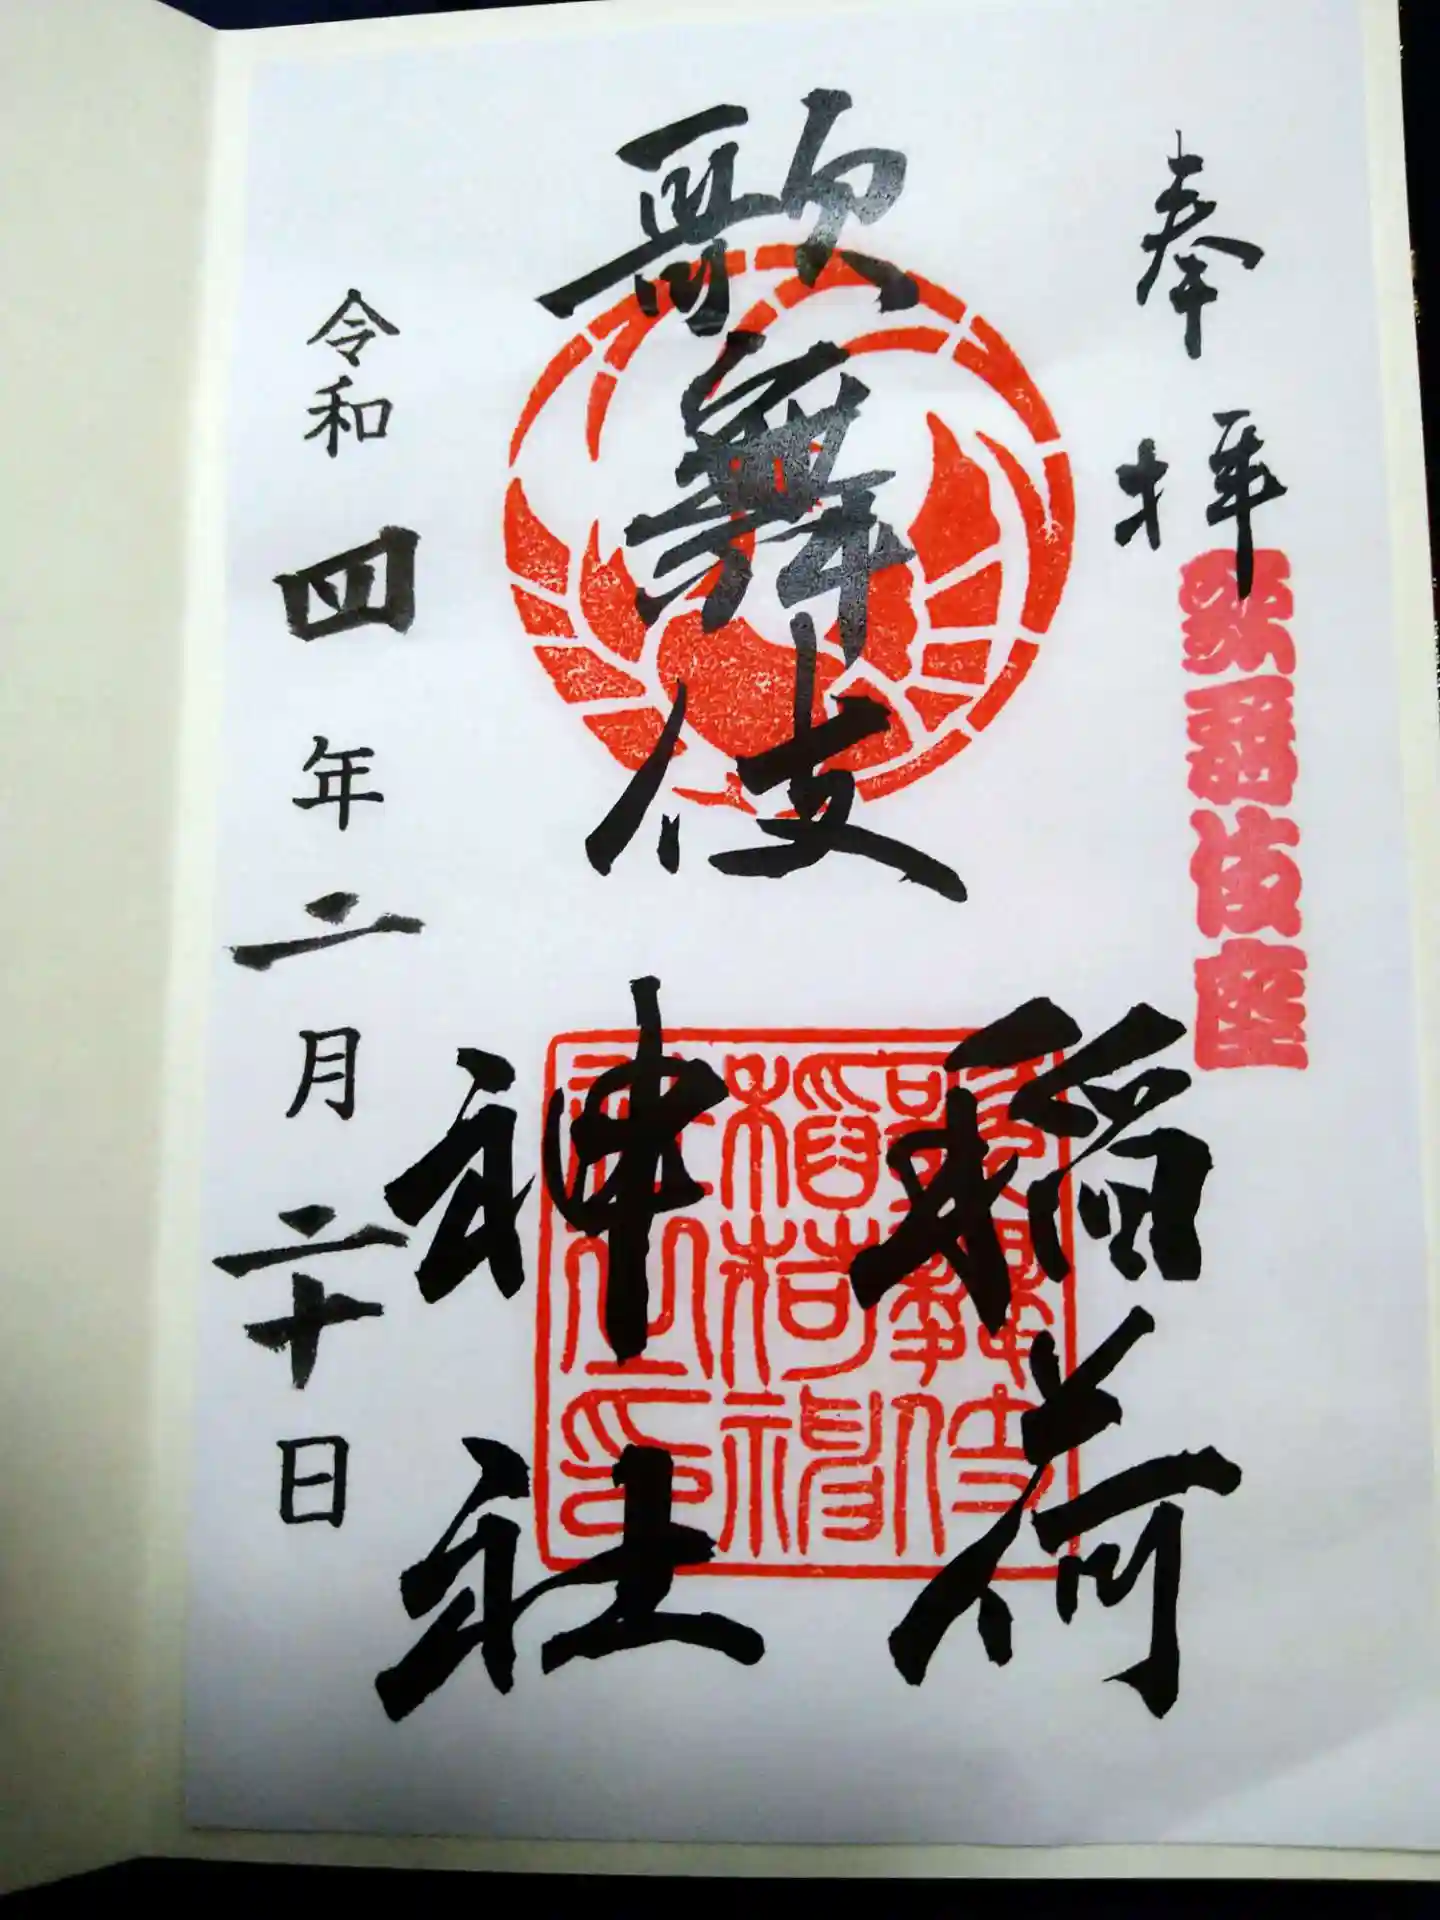 奉拝
歌舞伎座
歌舞伎
稲荷
神社
歌舞伎
稲荷神
社之印
令和四年二月二十日